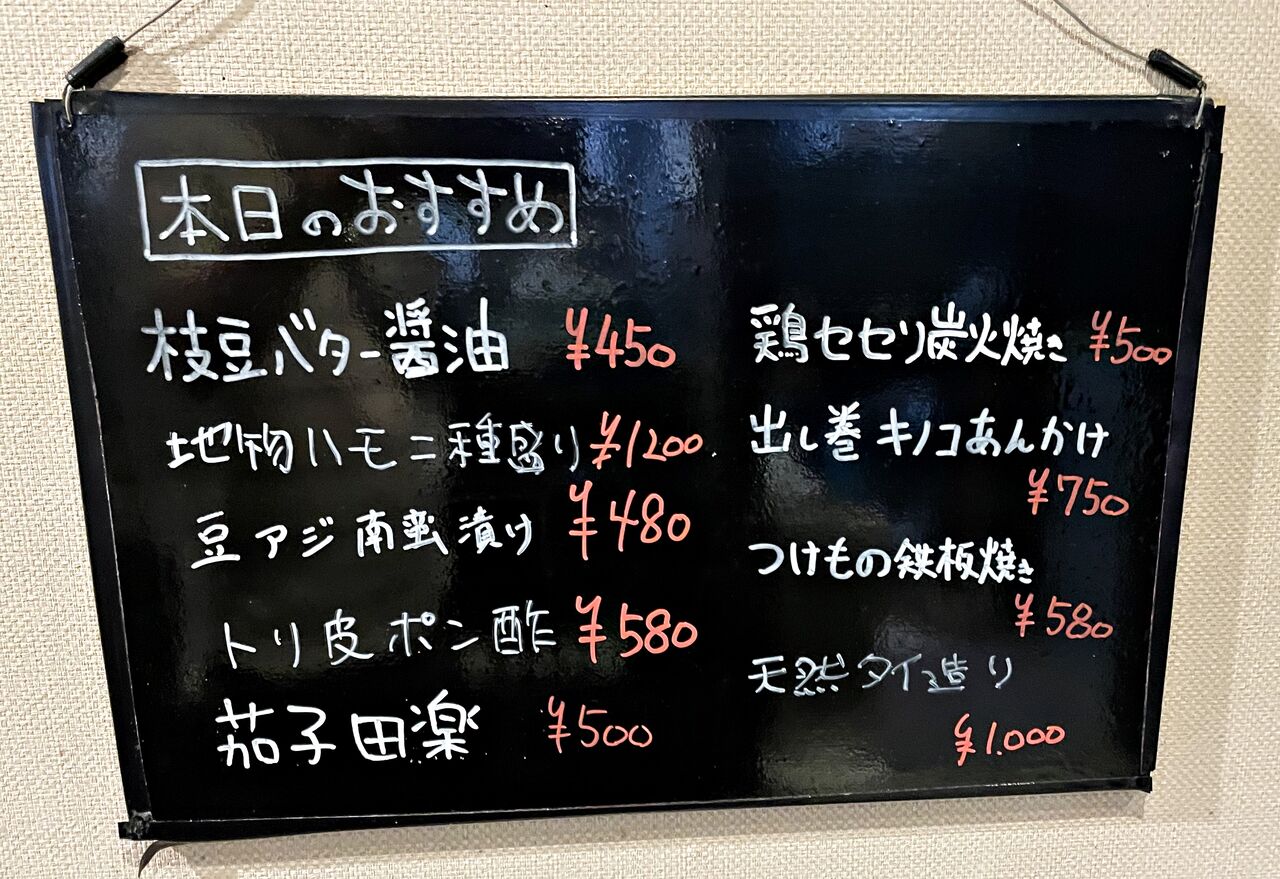 本日のおすすめ
枝豆バター醤油 ¥450
地物ハモ二種盛り ¥1200
豆アジ南蛮漬け ¥480
トリ皮ポン酢 ¥580
茄子田楽 ¥500
鶏セセリ炭火焼き ¥500
出し巻 キノコあんかけ
¥750
つけもの鉄板焼き
¥580
天然タイ造り
¥1.000